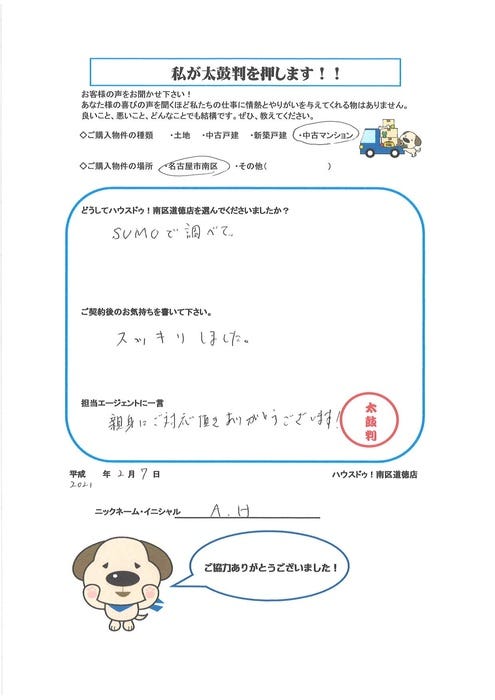 私が太鼓判を押します！！
お客様の声をお聞かせ下さい！
あなた様の喜びの声を聞くほど私たちの仕事に情熱とやりがいを与えてくれる物はありません。
良いこと、悪いこと、どんなことでも結構です。ぜひ、教えてください。
◇ご購入物件の種類　・土地　・中古戸建　・新築戸建　・中古マンション
◇ご購入物件の場所　・名古屋市南区　・その他（　　　　　　）
どうしてハウスドゥ！南区道徳店を選んでくださいましたか？
SUMOで調べて。
ご契約後のお気持ちを書いて下さい。
スッキリしました。
担当エージェントに一言
親身にご対応頂きありがとうございます！
太鼓判
平成　年 2 月 7 日　ハウスドゥ！南区道徳店
2021
ニックネーム・イニシャル　A.H
ご協力ありがとうございました！